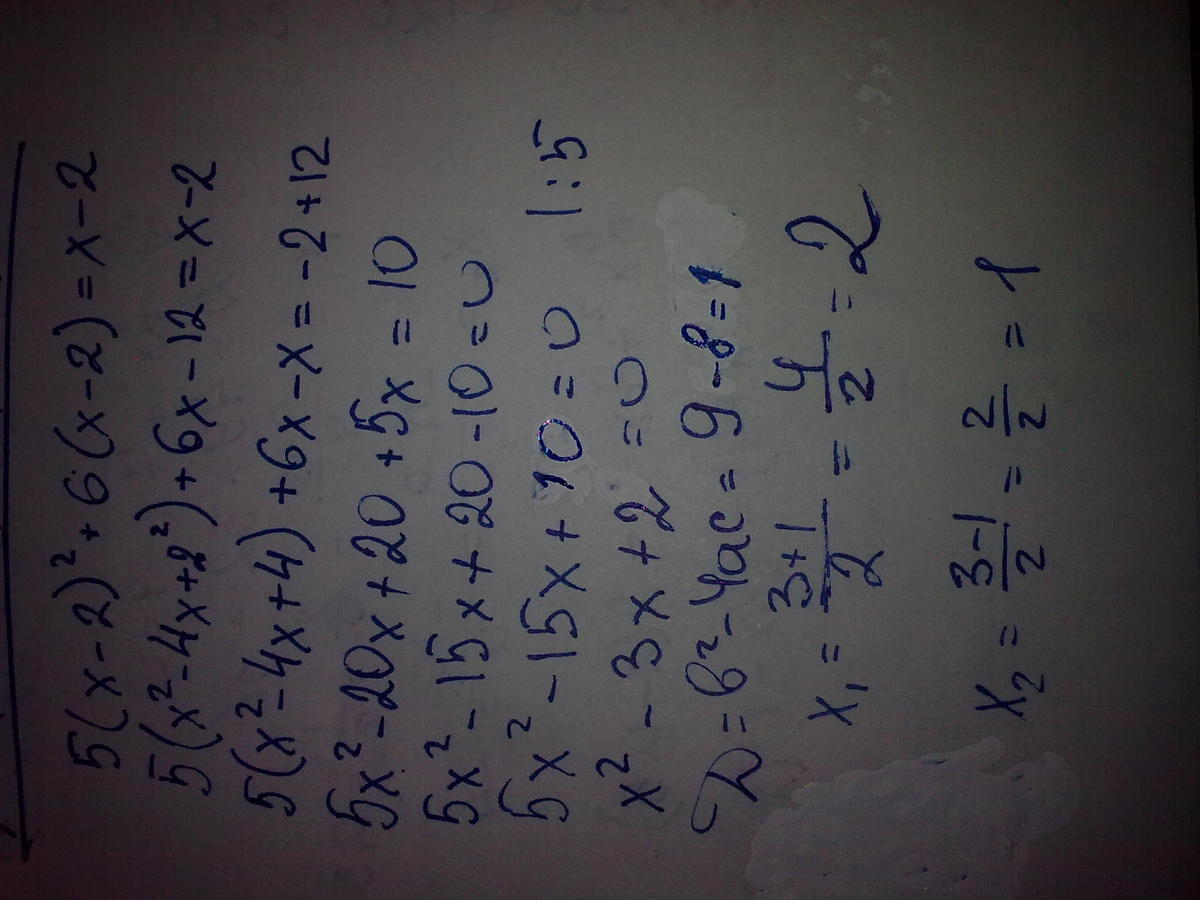 5(x-2)²+6(x-2)=x-2
5(x²-4x+2²)+6x-12=x-2
5(x²-4x+4)+6x-x=-2+12
5x²-20x+20+5x=10
5x²-15x+20-10=0
5x²-15x+10=0 |:5
x²-3x+2=0
D=b²-4ac=9-8=1
x₁=\frac{3+1}{2}=\frac{4}{2}=2
x₂=\frac{3-1}{2}=\frac{2}{2}=1